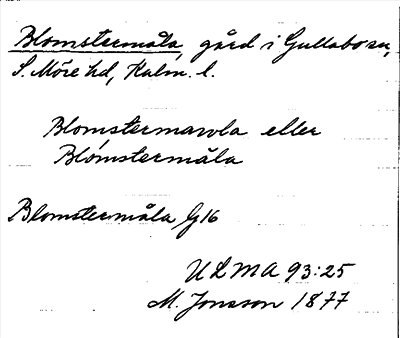 Blomstermåla, gård i Gullabo sn,
S. Möre hd, Kalm. l.
Blomstermavla eller
Blomstermåla
Blomstermåla G16
ULMA 93:25
M. Jonsson 1877